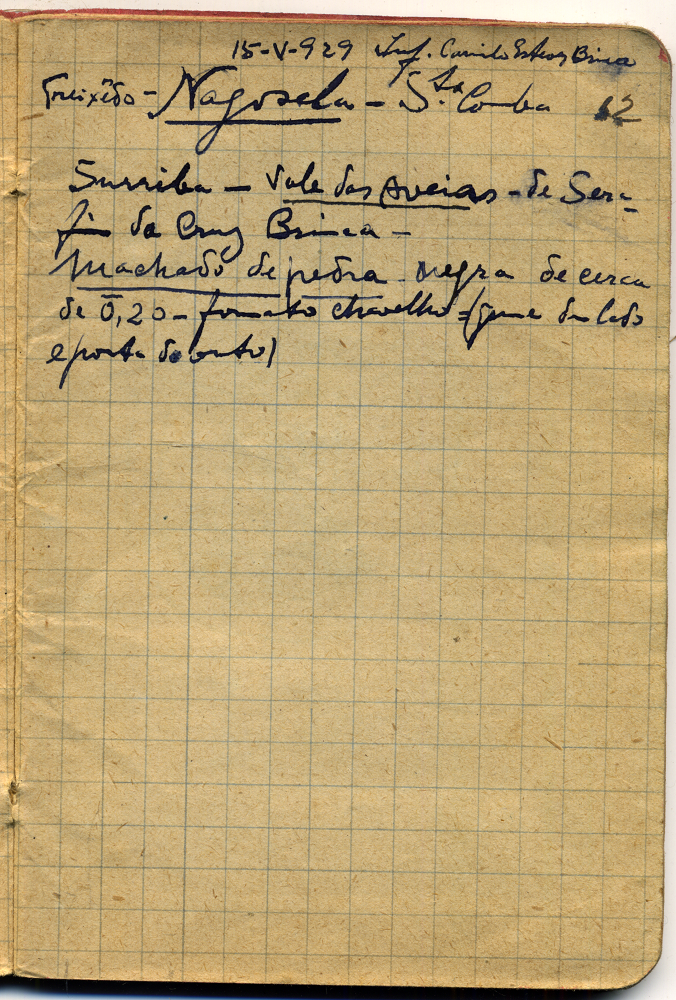 15-V-929 Inf. Camilo Esteves Brinca
Treixêdo - Nagosela - Sta. Comba 12
Surriba - Vale das Aveias - de Sera-
fim da Cruz Brinca -
Machado de pedra negra de cerca
de 0,20 - formato (gume dum lado
e ponta do outro)